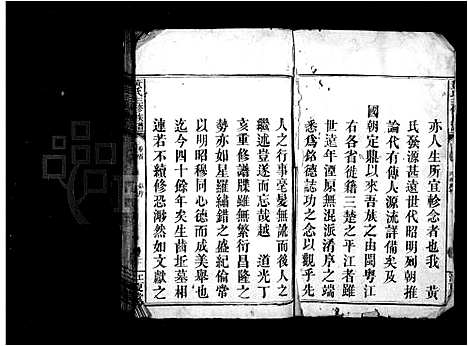 亦人生所宜軫念者也我　黃
氏發源甚遠世代昭明列朝推
論代有傳人源流詳備矣及
國朝定鼎以來吾族之由閩粤江
右各省徙籍三楚之平江者雖
世遠年湮原無混派淆序之端
悉為銘德誌功之以觀乎先
人之行事毫髮無訛而後人之
繼述豈遂而忘哉越　道光丁
亥重修譜牒雖無繁衍昌隆之
勢亦如星羅繡錯之盛紀倫常
以明昭穆同心德而成美舉也
迄今四十餘年矣生齒坵墓相
連若不續修恐渺然如文獻之